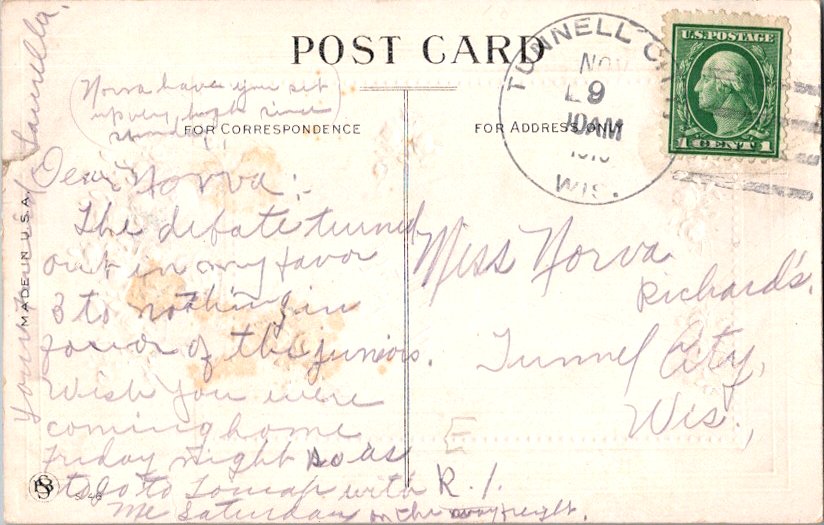 POST CARD
TUNNELL CITY
NOV
9
10AM
WIS.
U.S. POSTAGE
1 CENT 1
Norva have you set
up very high since
FOR CORRESPONDENCE
FOR ADDRESS ONLY
Dear Norva:-
The debate turned
out in my favor
3 to nothing in
favor of the juniors.
Wish you were
coming home
Friday night so as
to go to Tomah with
me Saturday on the wayfreight.
Your friend Laurella.
MADE IN U.S.A.
Miss Norva
Richard's,
Tunnel City,
Wis.,
E
R. 1.